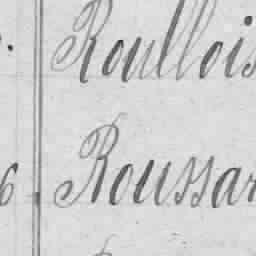 Roullois
6. Roussar